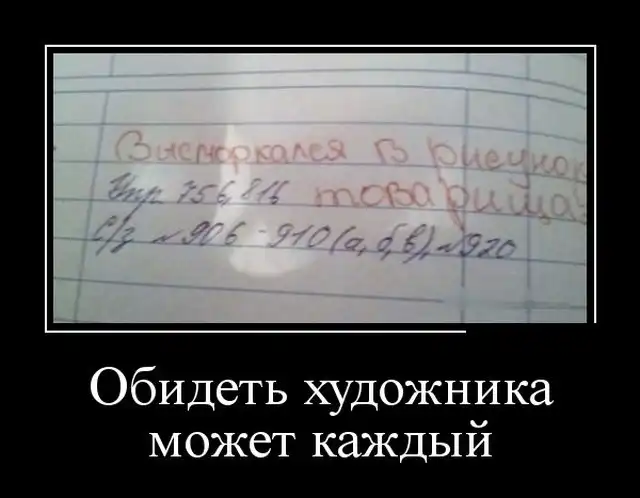 Высморкался в рисунок
Упр 756, 816 товарища!
С/з №906 - 910 (а, б, в), №920
Обидеть художника
может каждый